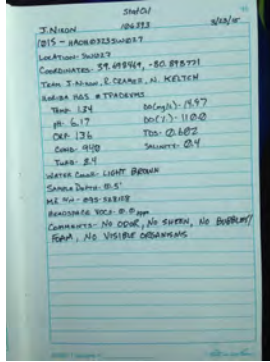 Statoil
J. NIXON 106393 3/23/15
1015 - HAOH0323SW027
LOCATION: SW027
COORDINATES: 39.698469, -80.898771
TEAM: J. NIXON, R. CRAMER, N. KELTCH
HORIBA HGS # TPADEVMS
TEMP: 1.34 DO(mg/L): 14.97
pH: 6.17 DO(%): 110.0
ORP: 136 TDS: 0.602
COND: 940 SALINITY: 0.4
TURB: 8.4
WATER COLOR: LIGHT BROWN
SAMPLE DEPTH: 0.5'
HEADSPACE VOCs: 0.0 ppm
COMMENTS: NO ODOR, NO SHEEN, NO BUBBLES/
FOAM, NO VISIBLE ORGANISMS